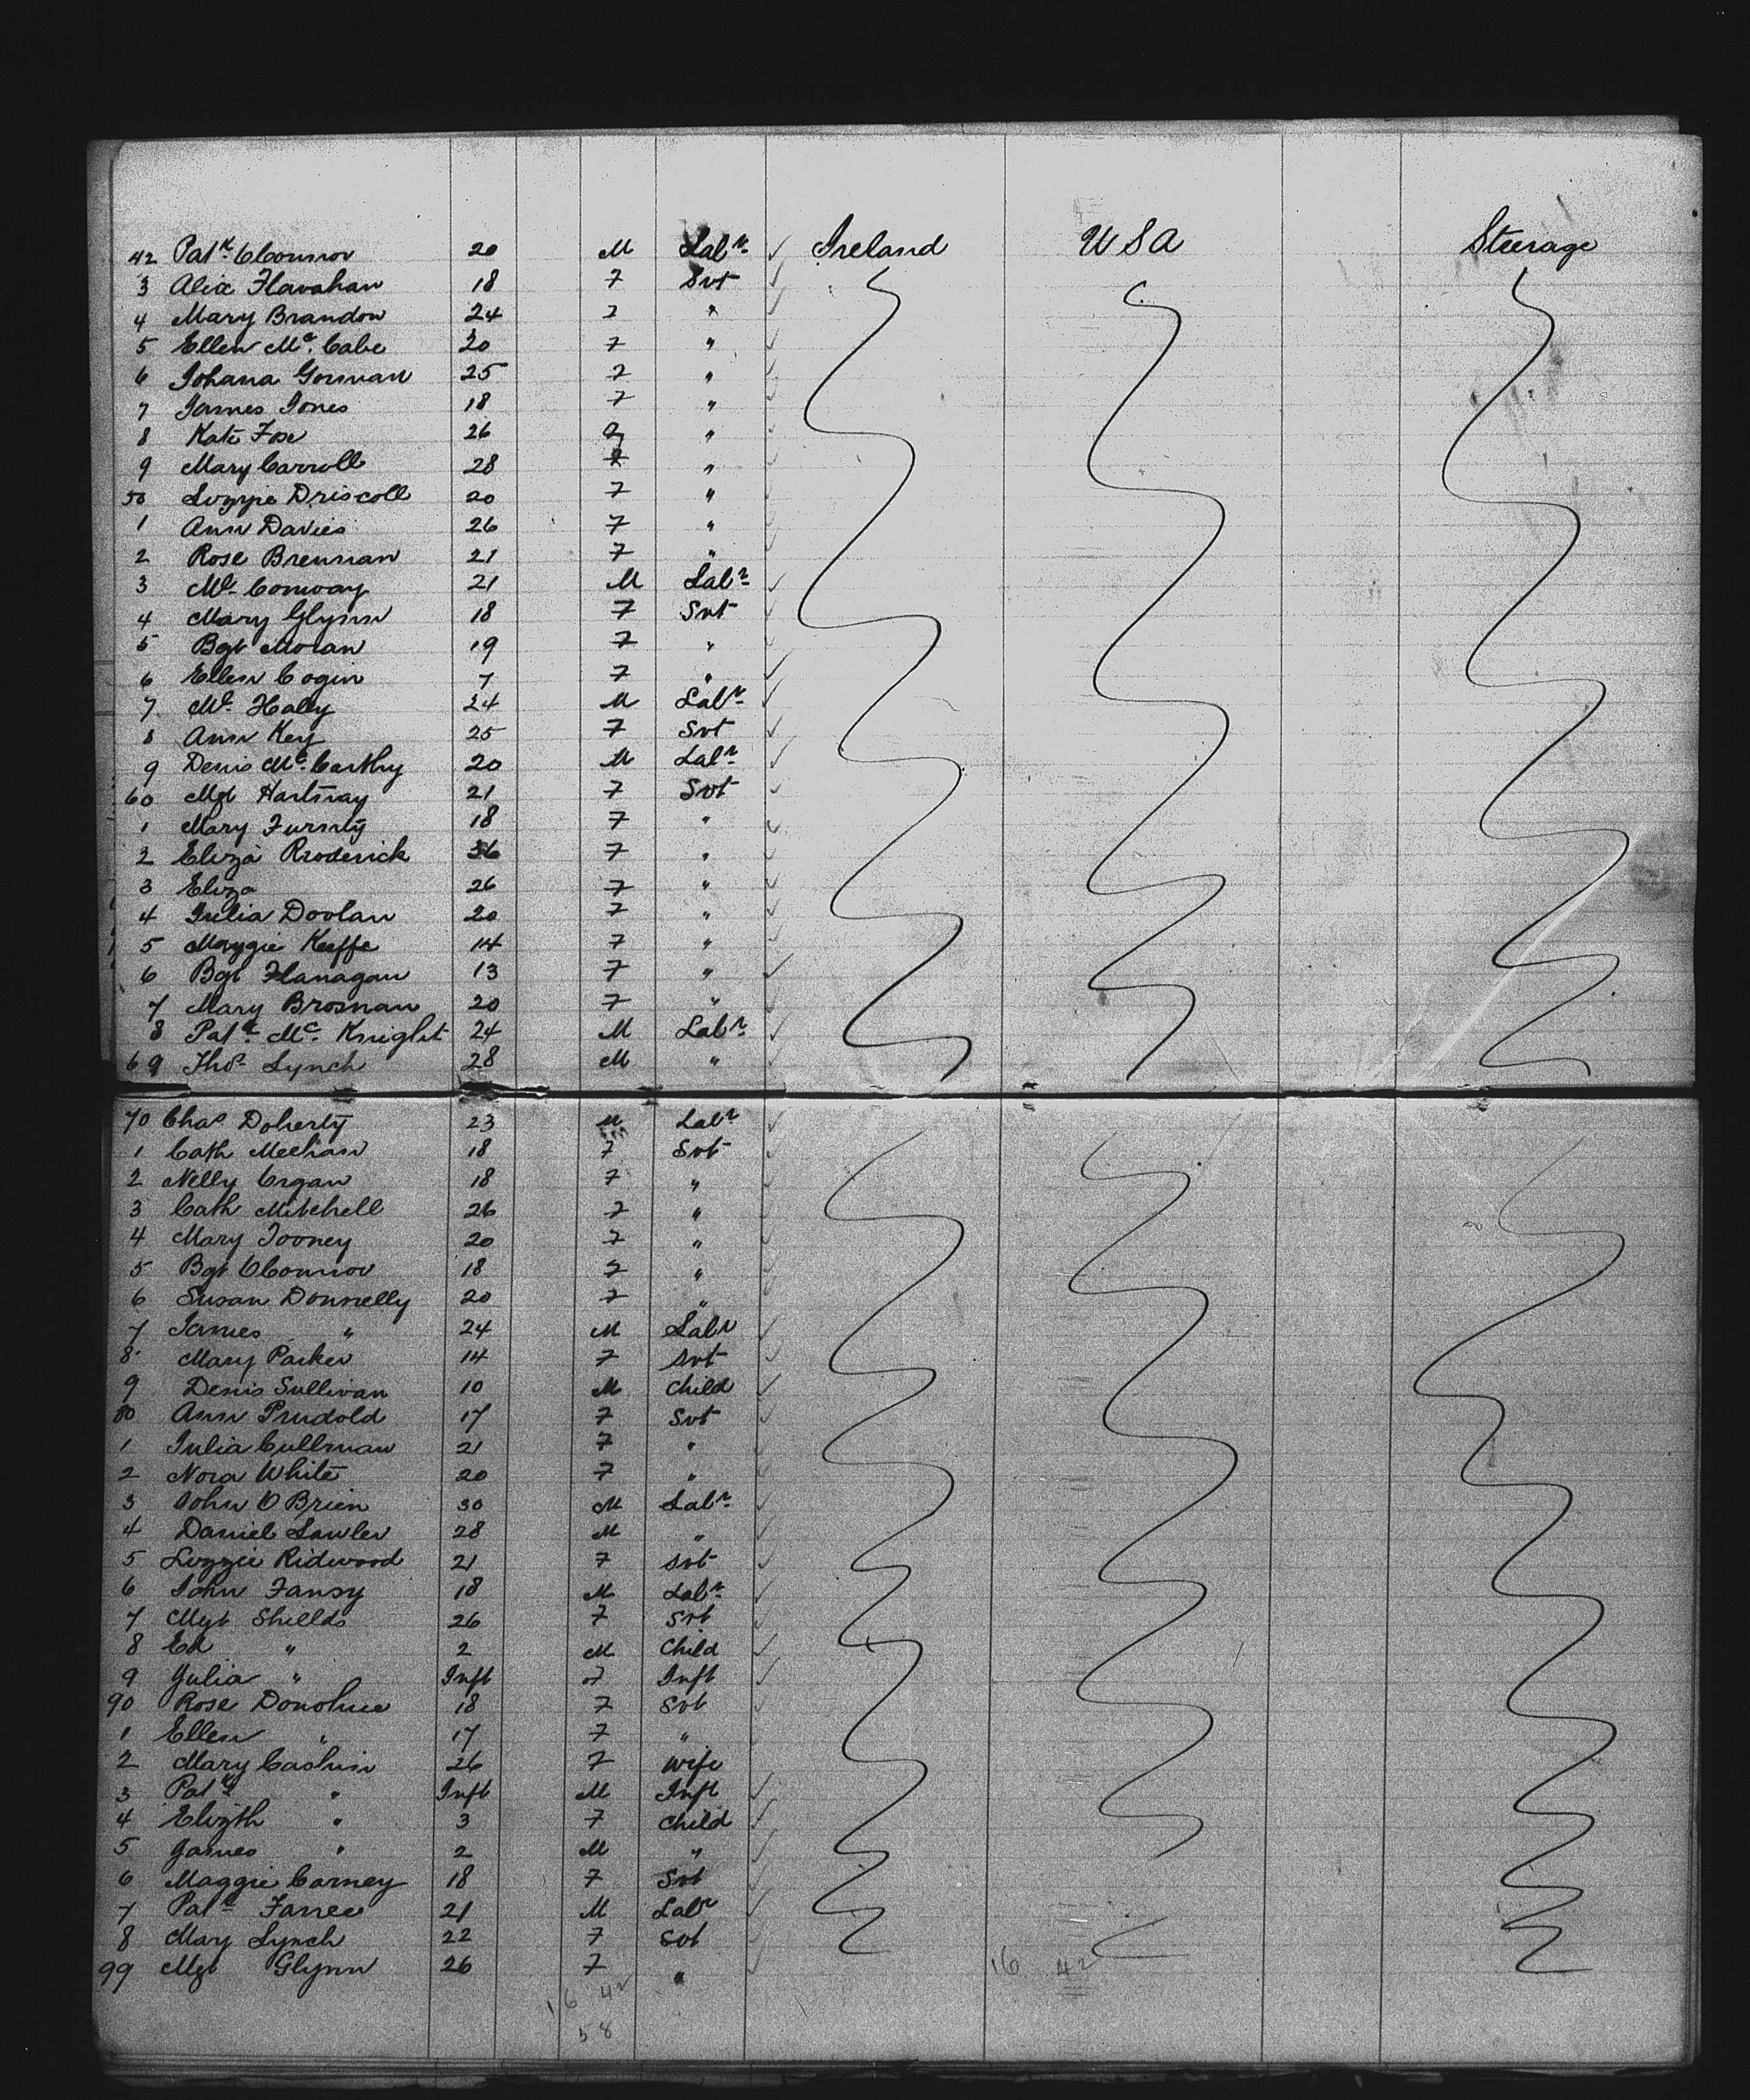 42 Patk OConnor 20 M Labr Ireland USA Steerage
3 Alice Flavahan 18 F Svt
4 Mary Brandon 24 F "
5 Ellen Mc Cabe 20 F "
6 Johana Gorman 25 F "
7 James Jones 18 F "
8 Kate Fox 26 F "
9 Mary Carroll 28 F "
50 Lizzie Driscoll 20 F "
1 Ann Davies 26 F "
2 Rose Brennan 21 F "
3 Ml Conway 21 M Labr
4 Mary Glynn 18 F Svt
5 Bgt Moran 19 F "
6 Ellen Cogin 7 F "
7 Ml Hally 24 M Labr
8 Ann Key 25 F Svt
9 Denis Mc Carthy 20 M Labr
60 Mgt Hartnay 21 F Svt
1 Mary Furnty 18 F "
2 Eliza Rroderick 36 F "
3 Eliza 26 F "
4 Julia Doolan 20 F "
5 Maggie Keeffe 14 F "
6 Bgt Flanagan 13 F "
7 Mary Brosnan 20 F "
8 Patk Mc Knight 24 M Labr
69 Thos Lynch 28 M "
70 Chas Doherty 23 M Labr
1 Cath Meehan 18 F Svt
2 Nelly Organ 18 F "
3 Cath Mitchell 26 F "
4 Mary Tooney 20 F "
5 Bgt OConnor 18 F "
6 Susan Donnelly 20 F "
7 James " 24 M Labr
8 Mary Parker 14 F Svt
9 Denis Sullivan 10 M Child
80 Ann Prudold 17 F Svt
1 Julia Cullman 21 F "
2 Nora White 20 F "
3 John O Brien 30 M Labr
4 Daniel Lawler 28 M "
5 Lizzie Ridwood 21 F Svt
6 John Fansy 18 M Labr
7 Mgt Shields 26 F Svt
8 Ed " 2 M Child
9 Julia " Inft F Inft
90 Rose Donohue 18 F Svt
1 Ellen " 17 F "
2 Mary Cashin 26 F Wife
3 Patk " Inft M Inft
4 Elizth " 3 F Child
5 James " 2 M "
6 Maggie Carney 18 F Svt
7 Patk 21 M Labr
8 Mary Lynch 22 F Svt
99 Mgt Glynn 26 F "
16 42
16 42
58